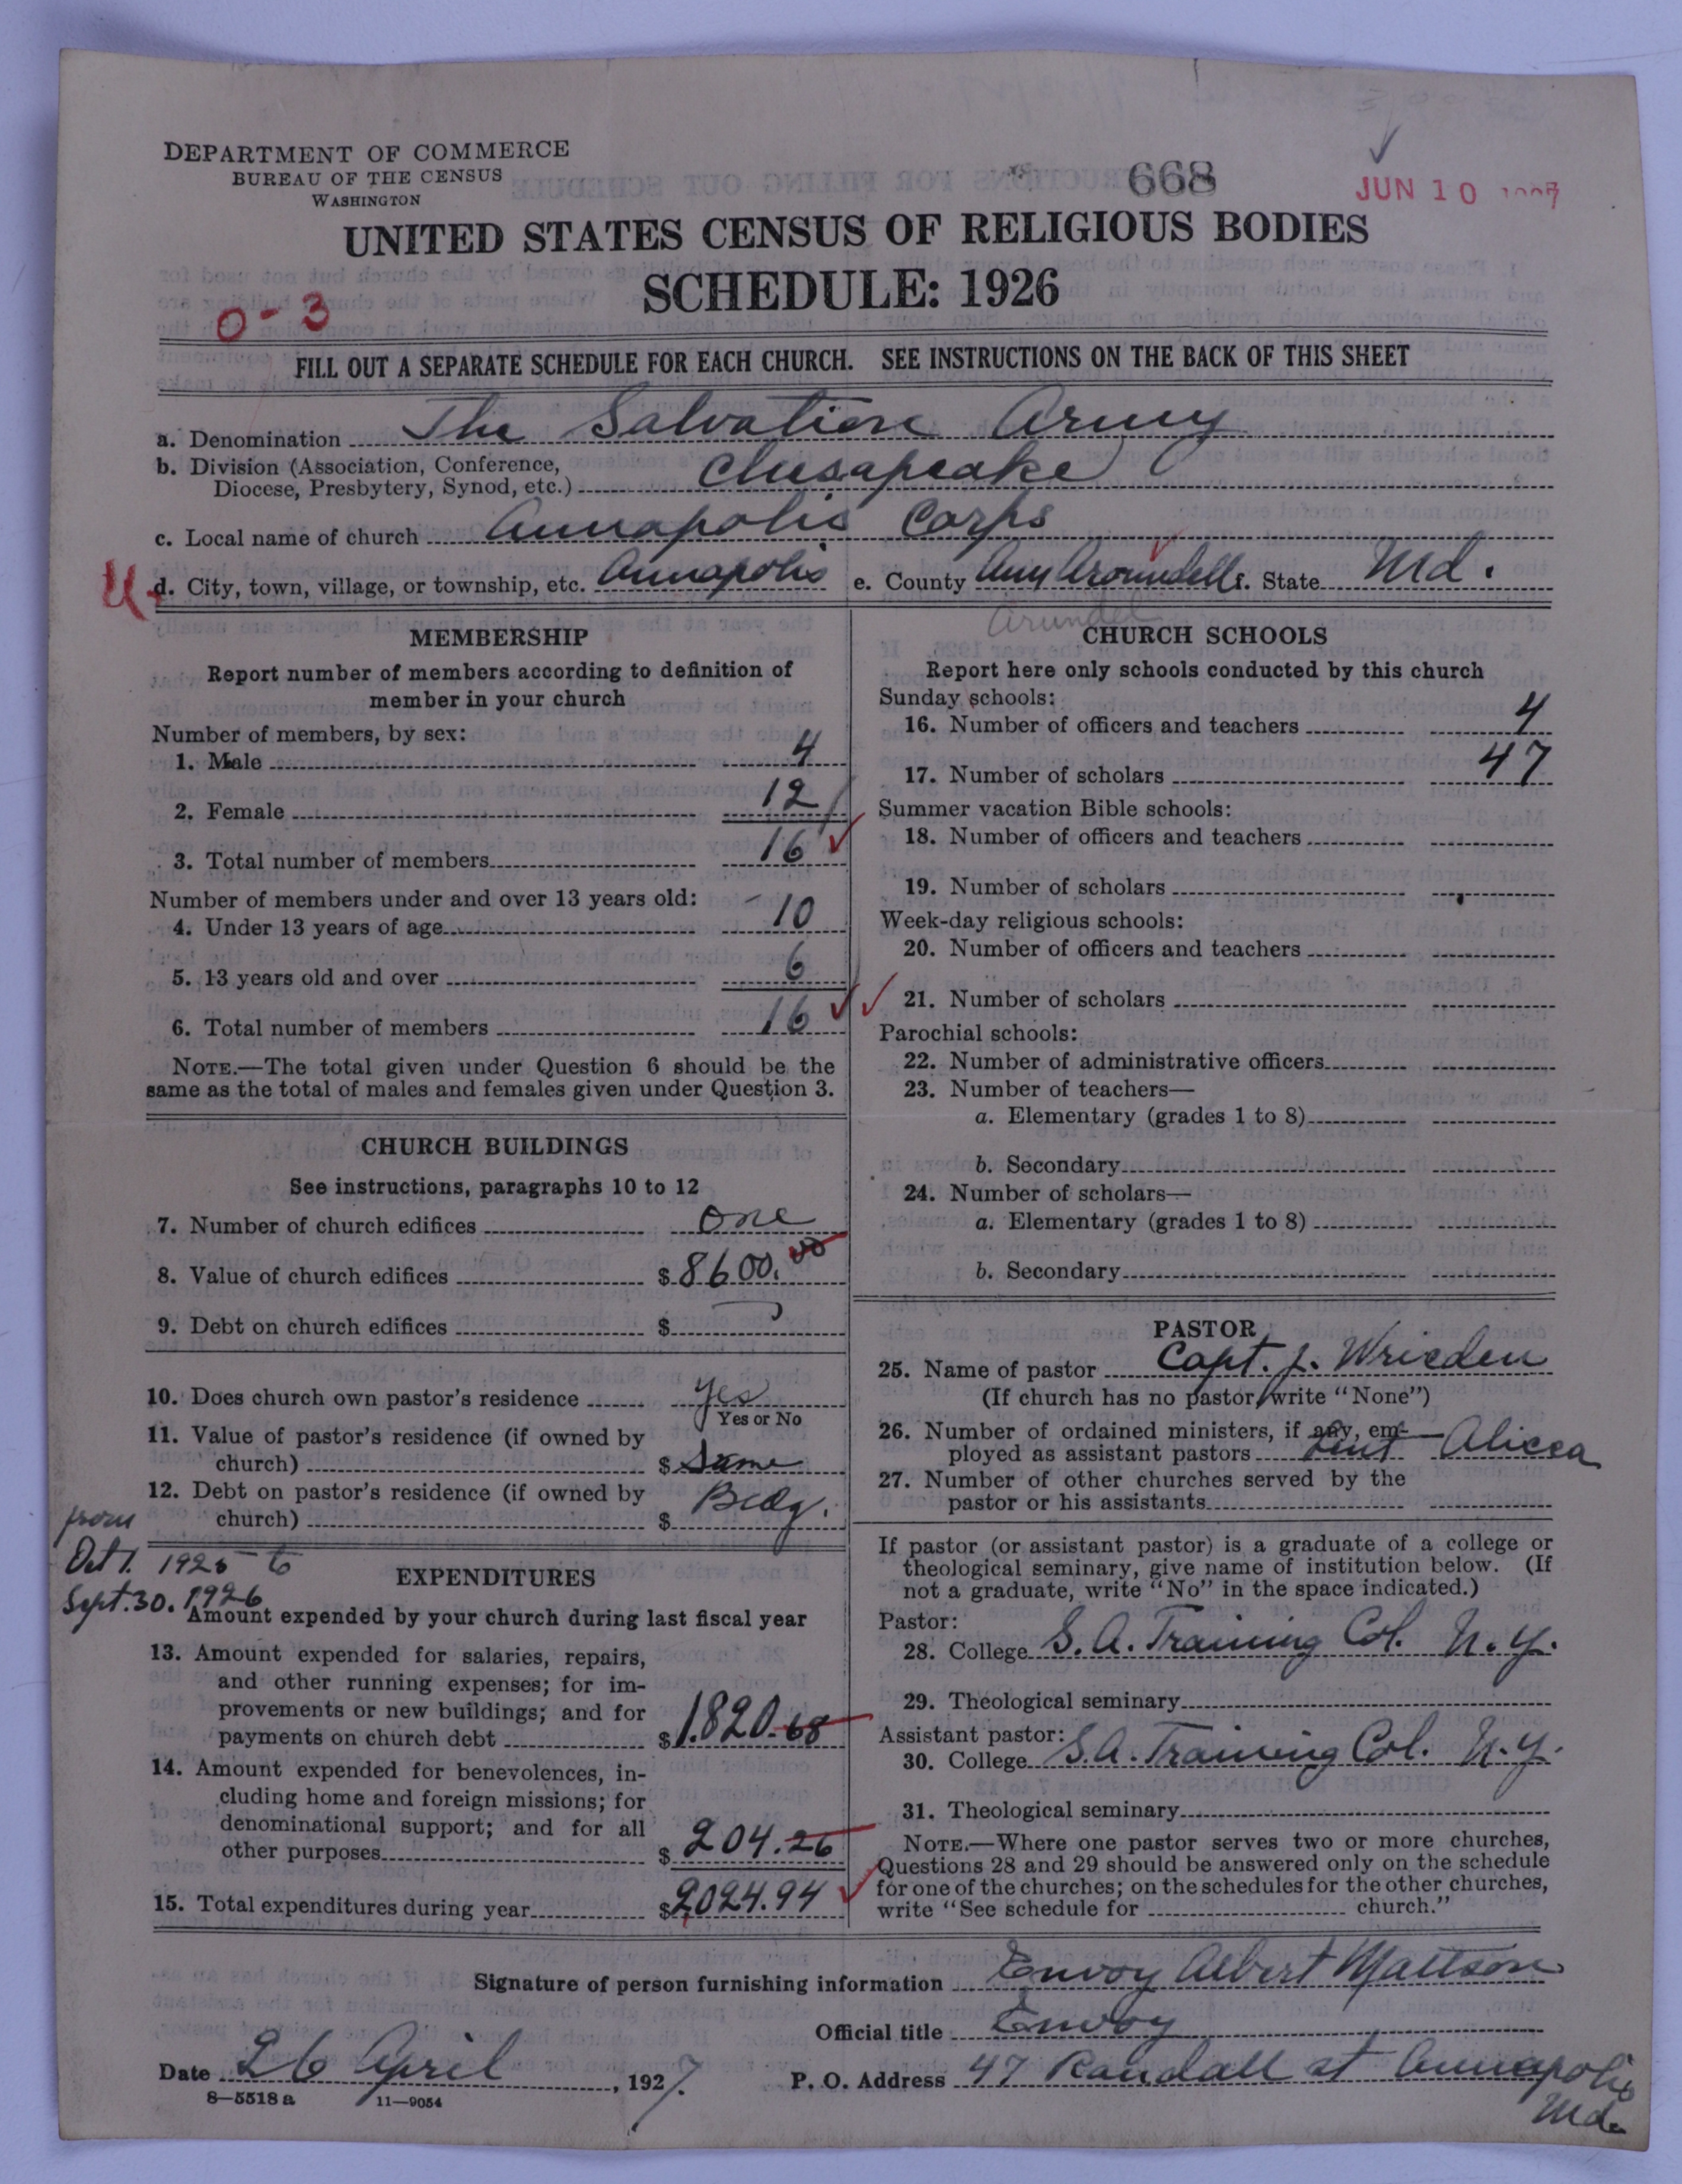 DEPARTMENT OF COMMERCE
BUREAU OF THE CENSUS
WASHINGTON
668
JUN 10
UNITED STATES CENSUS OF RELIGIOUS BODIES
SCHEDULE: 1926
0-3
FILL OUT A SEPARATE SCHEDULE FOR EACH CHURCH. SEE INSTRUCTIONS ON THE BACK OF THIS SHEET
a. Denomination The Salvation Army
b. Division (Association, Conference,
Diocese, Presbytery, Synod, etc.) Chesapeake
c. Local name of church Annapolis Corps
U d. City, town, village, or township, etc. Annapolis e. County Any Aroundell f. State Md.
Arundel
MEMBERSHIP
Report number of members according to definition of
member in your church
Number of members, by sex:
1. Male 4
2. Female 12
3. Total number of members 16
Number of members under and over 13 years old:
4. Under 13 years of age 10
5. 13 years old and over 6
6. Total number of members 16
NOTE.—The total given under Question 6 should be the
same as the total of males and females given under Question 3.
CHURCH BUILDINGS
See instructions, paragraphs 10 to 12
7. Number of church edifices one
8. Value of church edifices $ 8600.00
9. Debt on church edifices $
10. Does church own pastor's residence yes
Yes or No
11. Value of pastor's residence (if owned by
church) $ Same
12. Debt on pastor's residence (if owned by
church) $ Bldg.
from
Oct 1. 1925 to
Sept. 30. 1926
EXPENDITURES
Amount expended by your church during last fiscal year
13. Amount expended for salaries, repairs,
and other running expenses; for im-
provements or new buildings; and for
payments on church debt $ 1.820.68
14. Amount expended for benevolences, in-
cluding home and foreign missions; for
denominational support; and for all
other purposes $ 204.26
15. Total expenditures during year $ 2,024.94
CHURCH SCHOOLS
Report here only schools conducted by this church
Sunday schools:
16. Number of officers and teachers 4
17. Number of scholars 47
Summer vacation Bible schools:
18. Number of officers and teachers
19. Number of scholars
Week-day religious schools:
20. Number of officers and teachers
21. Number of scholars
Parochial schools:
22. Number of administrative officers
23. Number of teachers—
a. Elementary (grades 1 to 8)
b. Secondary
24. Number of scholars—
a. Elementary (grades 1 to 8)
b. Secondary
PASTOR
25. Name of pastor Capt. J. Wrieden
(If church has no pastor, write "None")
26. Number of ordained ministers, if any, em-
ployed as assistant pastors Lieut Alicea
27. Number of other churches served by the
pastor or his assistants
If pastor (or assistant pastor) is a graduate of a college or
theological seminary, give name of institution below. (If
not a graduate, write "No" in the space indicated.)
Pastor:
28. College S. A. Training Col. N. Y.
29. Theological seminary
Assistant pastor:
30. College S. A. Training Col. N. Y.
31. Theological seminary
NOTE.—Where one pastor serves two or more churches,
Questions 28 and 29 should be answered only on the schedule
for one of the churches; on the schedules for the other churches,
write "See schedule for church."
Signature of person furnishing information Envoy Albert Mattson
Official title Envoy
Date 26 April, 1927. P. O. Address 47 Randall st Annapolis
Md.
8—5518 a 11—9054